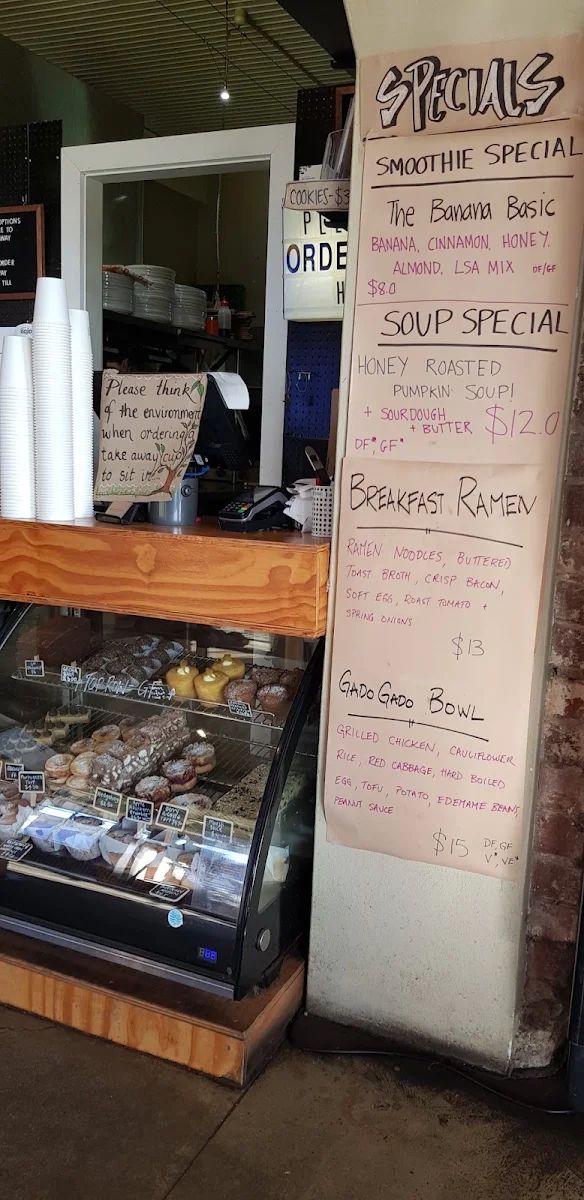 SPECIALS
SMOOTHIE SPECIAL
The Banana Basic
BANANA, CINNAMON, HONEY,
ALMOND, LSA MIX DF/GF
$8.0
SOUP SPECIAL
HONEY ROASTED
PUMPKIN SOUP!
+ SOURDOUGH
+ BUTTER $12.0
DF*, GF*
BREAKFAST RAMEN
RAMEN NOODLES, BUTTERED
TOAST BROTH, CRISP BACON,
SOFT EGG, ROAST TOMATO +
SPRING ONIONS
$13
GADO GADO BOWL
GRILLED CHICKEN, CAULIFLOWER
RICE, RED CABBAGE, HARD BOILED
EGG, TOFU, POTATO, EDEMAME BEANS,
PEANUT SAUCE
$15 DF, GF
V*, VE*
COOKIES-$3
ORDE
Please think
of the environment
when ordering
take away cup
to sit in...
TOP ROW - GF
ORDER
TILL